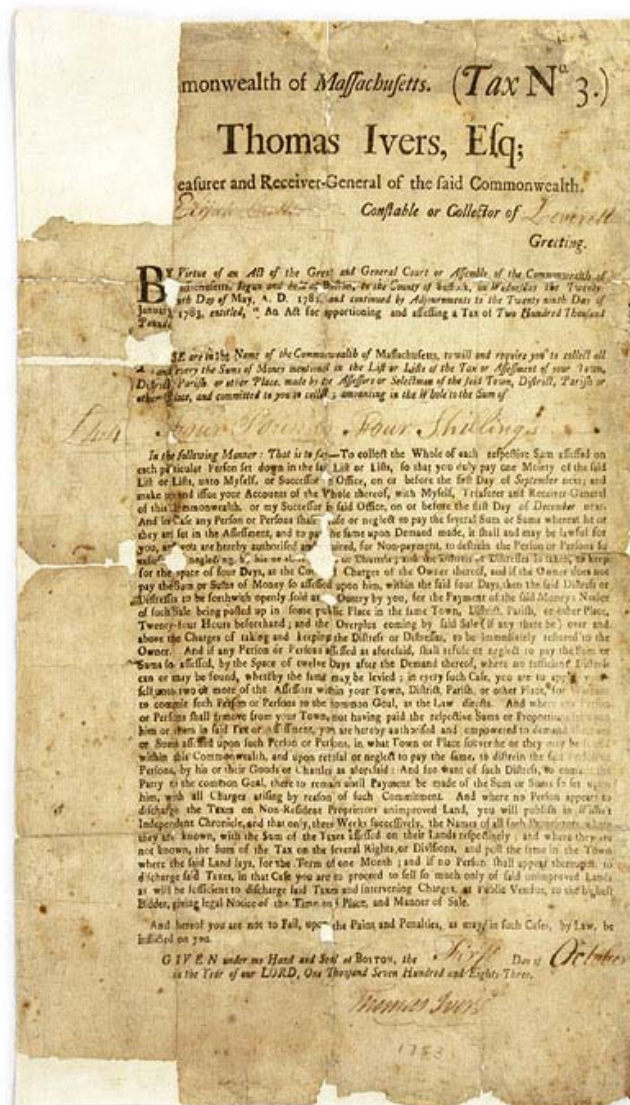 monwealth of Maſſachuſetts. (Tax No. 3.)
Thomas Ivers, Eſq;
eaſurer and Receiver-General of the ſaid Commonwealth.
Elijah Conſtable or Collector of Leverett
Greeting.
BY Virtue of an Act of the Great and General Court or Aſſemble of the Commonwealth of
begun and held at Boſton, in the County of Suffolk, on Wedneſday the Twenty
Day of May, A. D. 1782, and continued by Adjournments to the Twenty ninth Day of
January 1783, entitled, " An Act for apportioning and aſſeſſing a Tax of Two Hundred Thouſand
Pounds
SE are in the Name of the Commonwealth of Maſſachuſetts, to will and require you to collect all
and every the Sums of Money mentioned in the Liſt or Liſts of the Tax or Aſſeſſment of your Town,
Diſtrict, Pariſh or other Place, made by the Aſſeſſors or Selectmen of the ſaid Town, Diſtrict, Pariſh or
other Place, and committed to you to collect; amounting in the Whole to the Sum of
Four Pounds Four Shillings
In the following Manner: That is to ſay—To collect the Whole of each reſpective Sum aſſeſſed on
each particular Perſon ſet down in the ſaid Liſt or Liſts, ſo that you duly pay one Moiety of the ſaid
Liſt or Liſts, unto Myſelf, or Succeſſor in Office, on or before the firſt Day of September next; and
make up and iſſue your Accounts of the Whole thereof, with Myſelf, Treaſurer and Receiver-General
of this Commonwealth, or my Succeſſor in ſaid Office, on or before the firſt Day of December next.
And in Caſe any Perſon or Perſons ſhall refuſe or neglect to pay the ſeveral Sum or Sums whereat he or
they are ſet in the Aſſeſſment, and to pay the ſame upon Demand made, it ſhall and may be lawful for
you, and you are hereby authoriſed and required, for Non-payment, to deſtrein the Perſon or Perſons ſo
neglecting, by his or their or Chattels; and the Diſtreſs or Diſtreſſes ſo taken, to keep
for the ſpace of four Days, at the Coſt Charges of the Owner thereof, and if the Owner does not
pay the Sum or Sums of Money ſo aſſeſſed upon him, within the ſaid four Days, then the ſaid Diſtreſs or
Diſtreſſes to be forthwith openly ſold at Outcry by you, for the Payment of the ſaid Money; Notice
of ſuch Sale being poſted up in ſome public Place in the ſame Town, Diſtrict, Pariſh, or other Place,
Twenty-four Hours beforehand; and the Overplus coming by ſaid Sale (if any there be) over and
above the Charges of taking and keeping the Diſtreſs or Diſtreſſes, to be immediately reſtored to the
Owner. And if any Perſon or Perſons aſſeſſed as aforeſaid, ſhall refuſe or neglect to pay the Sum or
Sums ſo aſſeſſed, by the Space of twelve Days after the Demand thereof, where no ſufficient Diſtreſs
can or may be found, whereby the ſame may be levied; in every ſuch Caſe, you are to apply
unto two or more of the Aſſeſſors within your Town, Diſtrict, Pariſh, or other Place, for
to commit ſuch Perſon or Perſons to the common Goal, as the Law directs. And where
or Perſons ſhall remove from your Town, not having paid the reſpective Sums or Proportions
him or them in ſaid Tax or Aſſeſſment, you are hereby authoriſed and empowered to demand
or Sums aſſeſſed upon ſuch Perſon or Perſons, in what Town or Place ſoever he or they may be
within this Commonwealth, and upon refuſal or neglect to pay the ſame, to diſtrein the ſaid
Perſons, by his or their Goods or Chattles as aforeſaid: And for want of ſuch Diſtreſs, to commit
Party to the common Goal, there to remain until Payment be made of the Sum or Sums ſo ſet upon
him, with all Charges ariſing by reaſon of ſuch Commitment. And where no Perſon appears to
diſcharge the Taxes on Non-Reſident Proprietors unimproved Land, you will publiſh in Willis's
Independent Chronicle, and that only, three Weeks ſucceſſively, the Names of all ſuch Proprietors where
they are known, with the Sum of the Taxes aſſeſſed on their Lands reſpectively; and where they are
not known, the Sum of the Tax on the ſeveral Rights or Diviſions, and poſt the ſame in the Town
where the ſaid Land lays, for the Term of one Month; and if no Perſon ſhall appear thereupon to
diſcharge ſaid Taxes, in that Caſe you are to proceed to ſell ſo much only of ſaid unimproved Lands
as will be ſufficient to diſcharge ſaid Taxes and intervening Charges, at Public Vendue, to the higheſt
Bidder, giving legal Notice of the Time and Place, and Manner of Sale.
And hereof you are not to Fail, upon the Pains and Penalties, as may in ſuch Caſes, by Law, be
inflicted on you.
GIVEN under my Hand and Seal at BOSTON, the Firſt Day of October
in the Year of our LORD, One Thouſand Seven Hundred and Eighty Three.
Thomas Ivers
1783